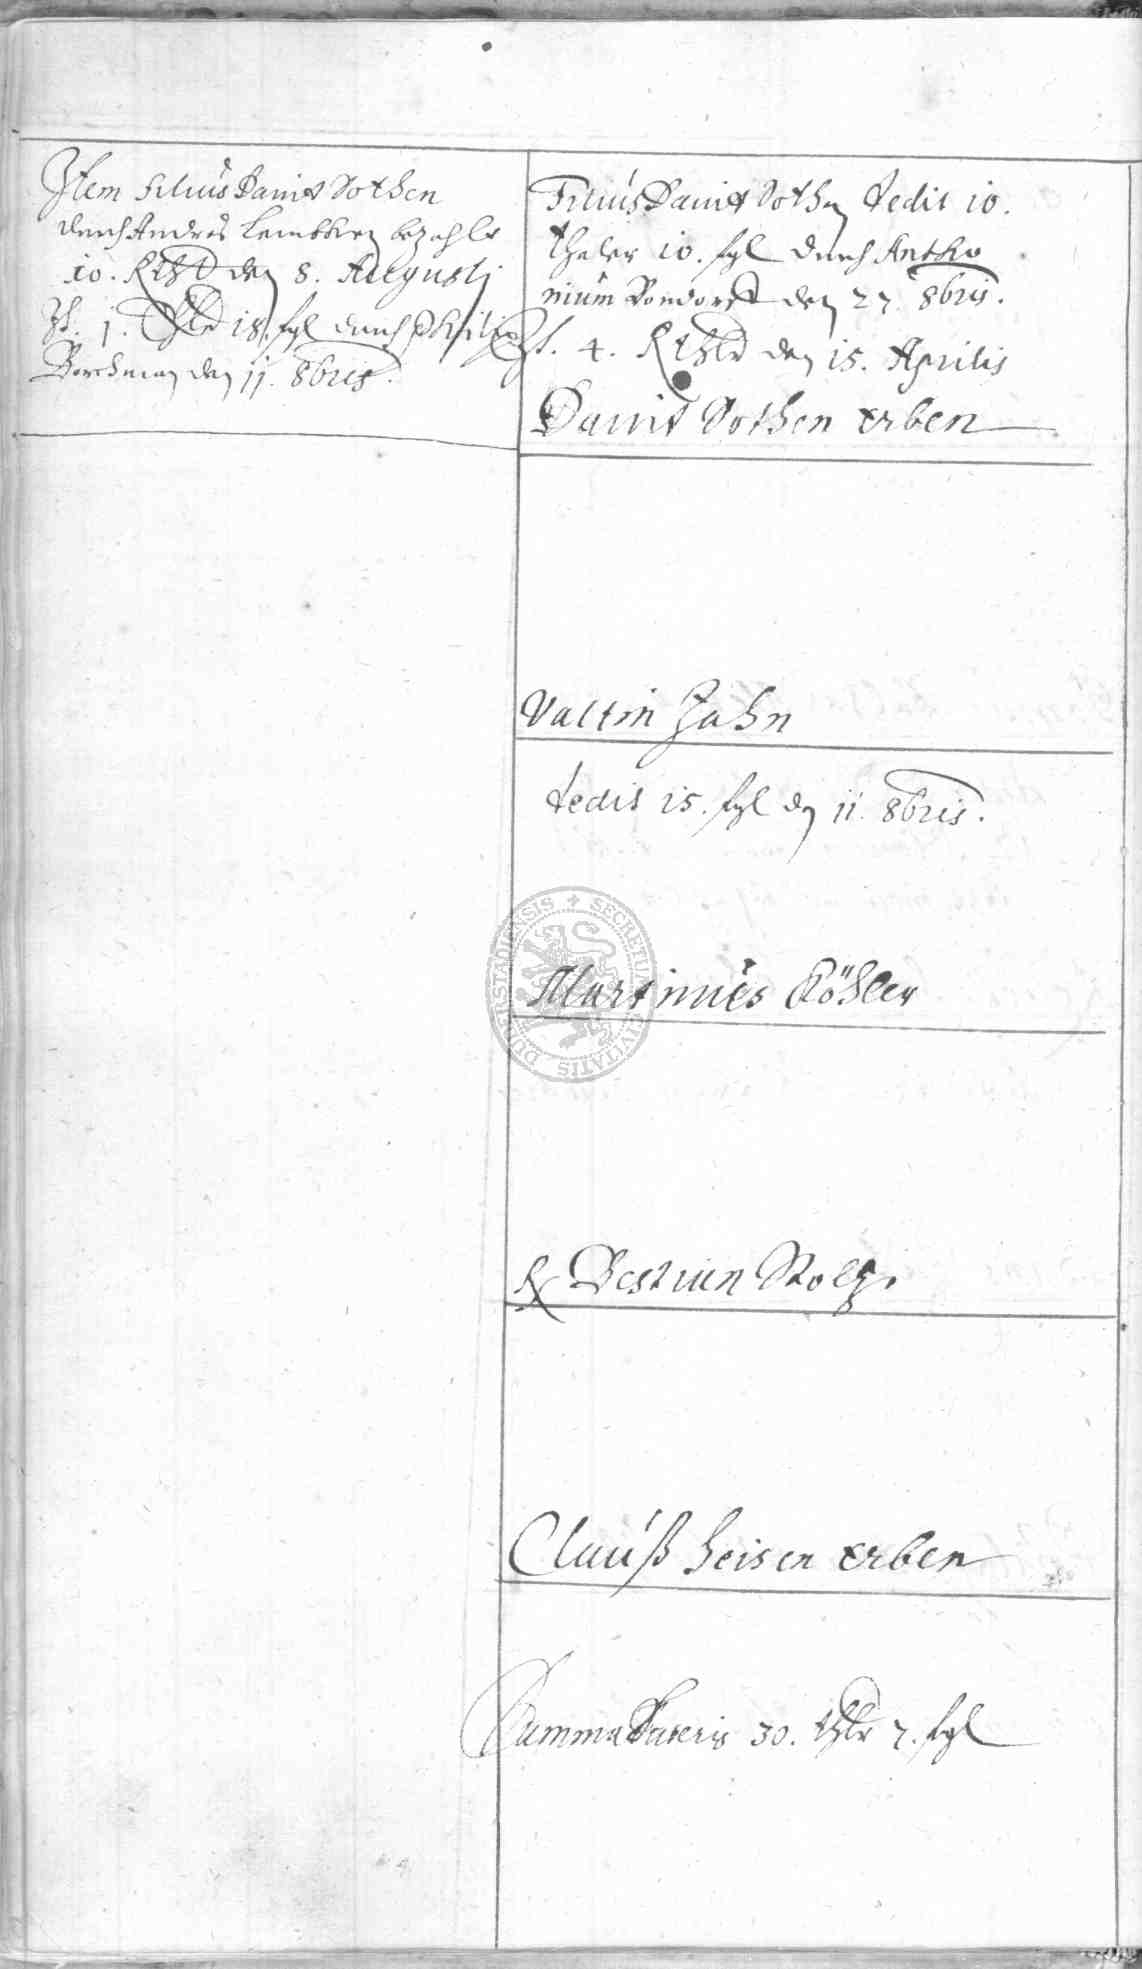 Item Filius Davit Vothen
durch Andres Lembken bezahlt
10. Rthlr den 8. Augustj
It. 1. Thlr 18. fgl durch Philip
Borchman den 11. 8bris.
Filius Davit Vothen dedit 10.
thaler 10. fgl durch Antho
nium den 27. 8bris.
It. 4. Rthlr den 15. Aprilis
Davit Vothen Erben
Valtin Jahn
dedit 15. fgl den 11. 8bris.
SECRETUM CIVITATIS DUDERSTADIENSIS
Martinus Köhler
Bestian
Clauß Heisen Erben
Summa Lateris 30. thlr 7. fgl